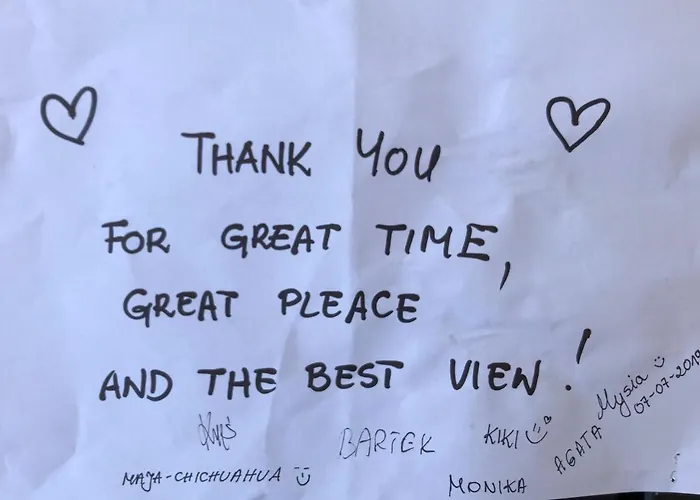 THANK YOU
FOR GREAT TIME,
GREAT PLEACE
AND THE BEST VIEW!
BARTEK
KIKI
AGATA Mysia
07-07-2019
MAJA-CHICHUAHUA
MONIKA